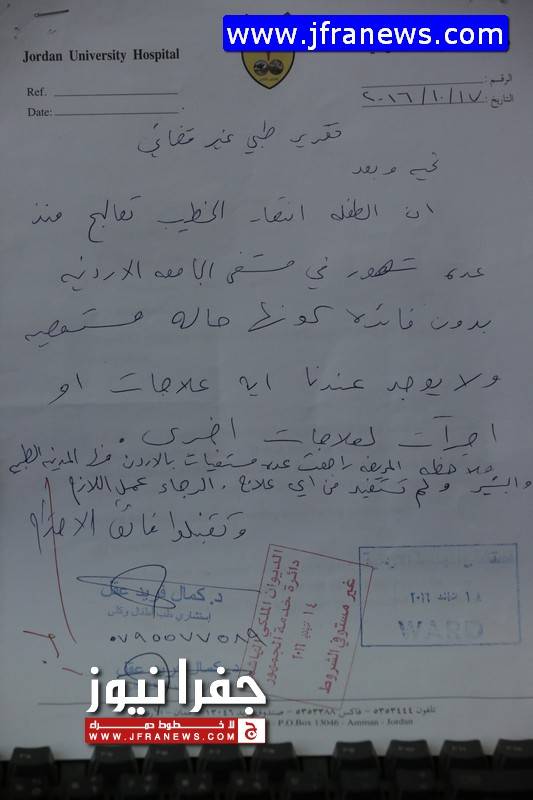 www.jfranews.com
Jordan University Hospital
Ref.
Date:
الرقم :
التاريخ : ٢٠١٦/١٠/١٧
تقرير طبي غير قضائي
تحيه وبعد
ان الطفله انتصار الخطيب تعالج منذ
عده شهور في مستشفى الجامعه الاردنيه
بدون فائده كونها حاله مستعصيه
ولا يوجد عندنا ايه علاجات او
اجرآت لعلاجات اخرى .
ملاحظه المريضه راجعت عده مستشفيات بالاردن المدينه الطبيه
والبشير ولم تستفيد من اي علاج . الرجاء عمل اللازم
وتقبلوا فائق الاحترام
د. كمال فريد عقل
إستشاري طب أطفال وكلى
٠٧٩٥٥٧٧٥٨٩
د. كمال فريد عقل
الديوان الملكي الهاشمي
دائرة خدمة الجمهور
١٤
٢٠١٦
غير مستوفي الشروط
WARD
تلفون ٥٣٥٣٤٤٤ – فاكس ٥٣٥٣٣٨٨
P.O.Box 13046 - Amman - Jordan
جفرا نيوز
لا خطوط حمراء
WWW.JFRANEWS.COM